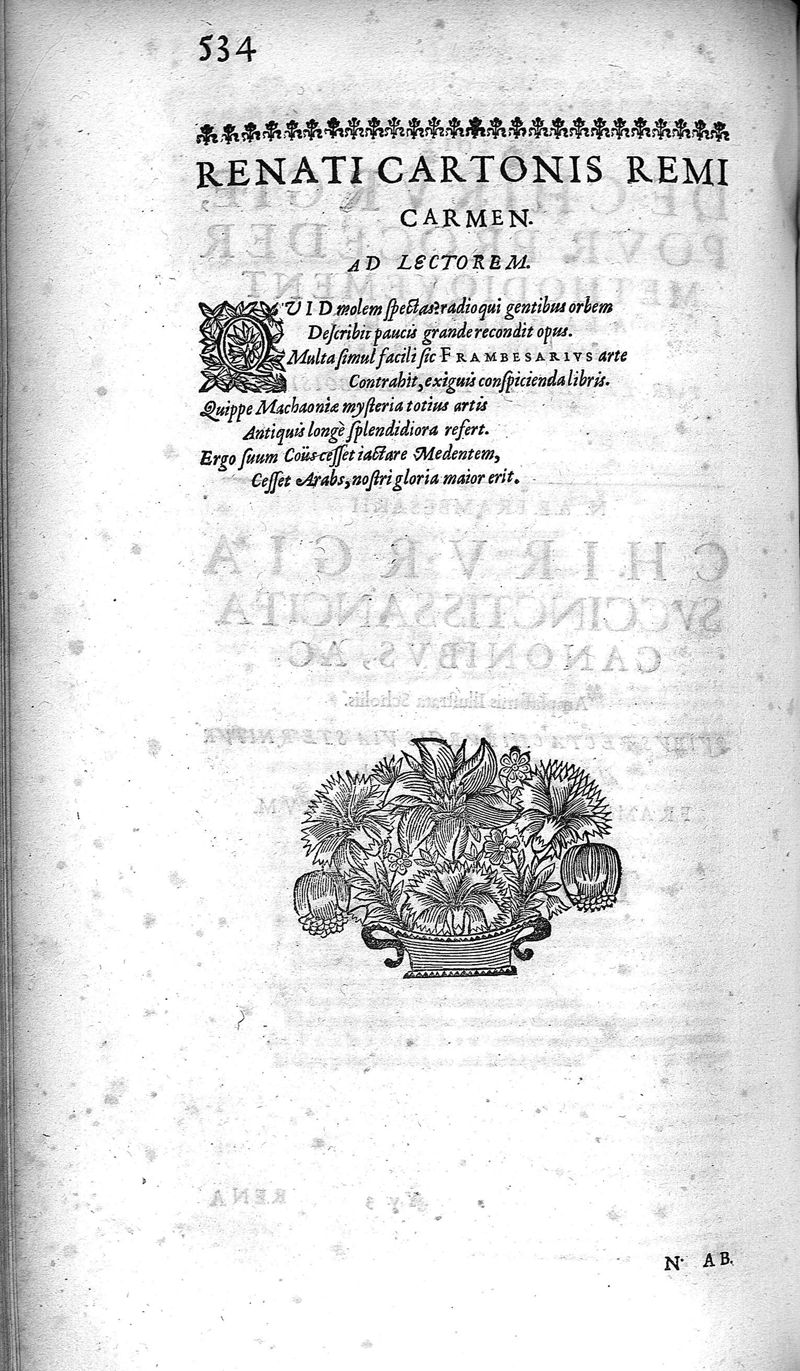 534
RENATI CARTONIS REMI
CARMEN.
AD LECTOREM.
QVID molem spectas? radio qui gentibus orbem
Describit paucis grande recondit opus.
Multa simul facili sic FRAMBESARIVS arte
Contrahit, exiguis conspicienda libris.
Quippe Machaoniæ mysteria totius artis
Antiquis longè splendidiora refert.
Ergo suum Coüs cesset iactare Medentem,
Cesset Arabs, nostri gloria maior erit.
N. AB.